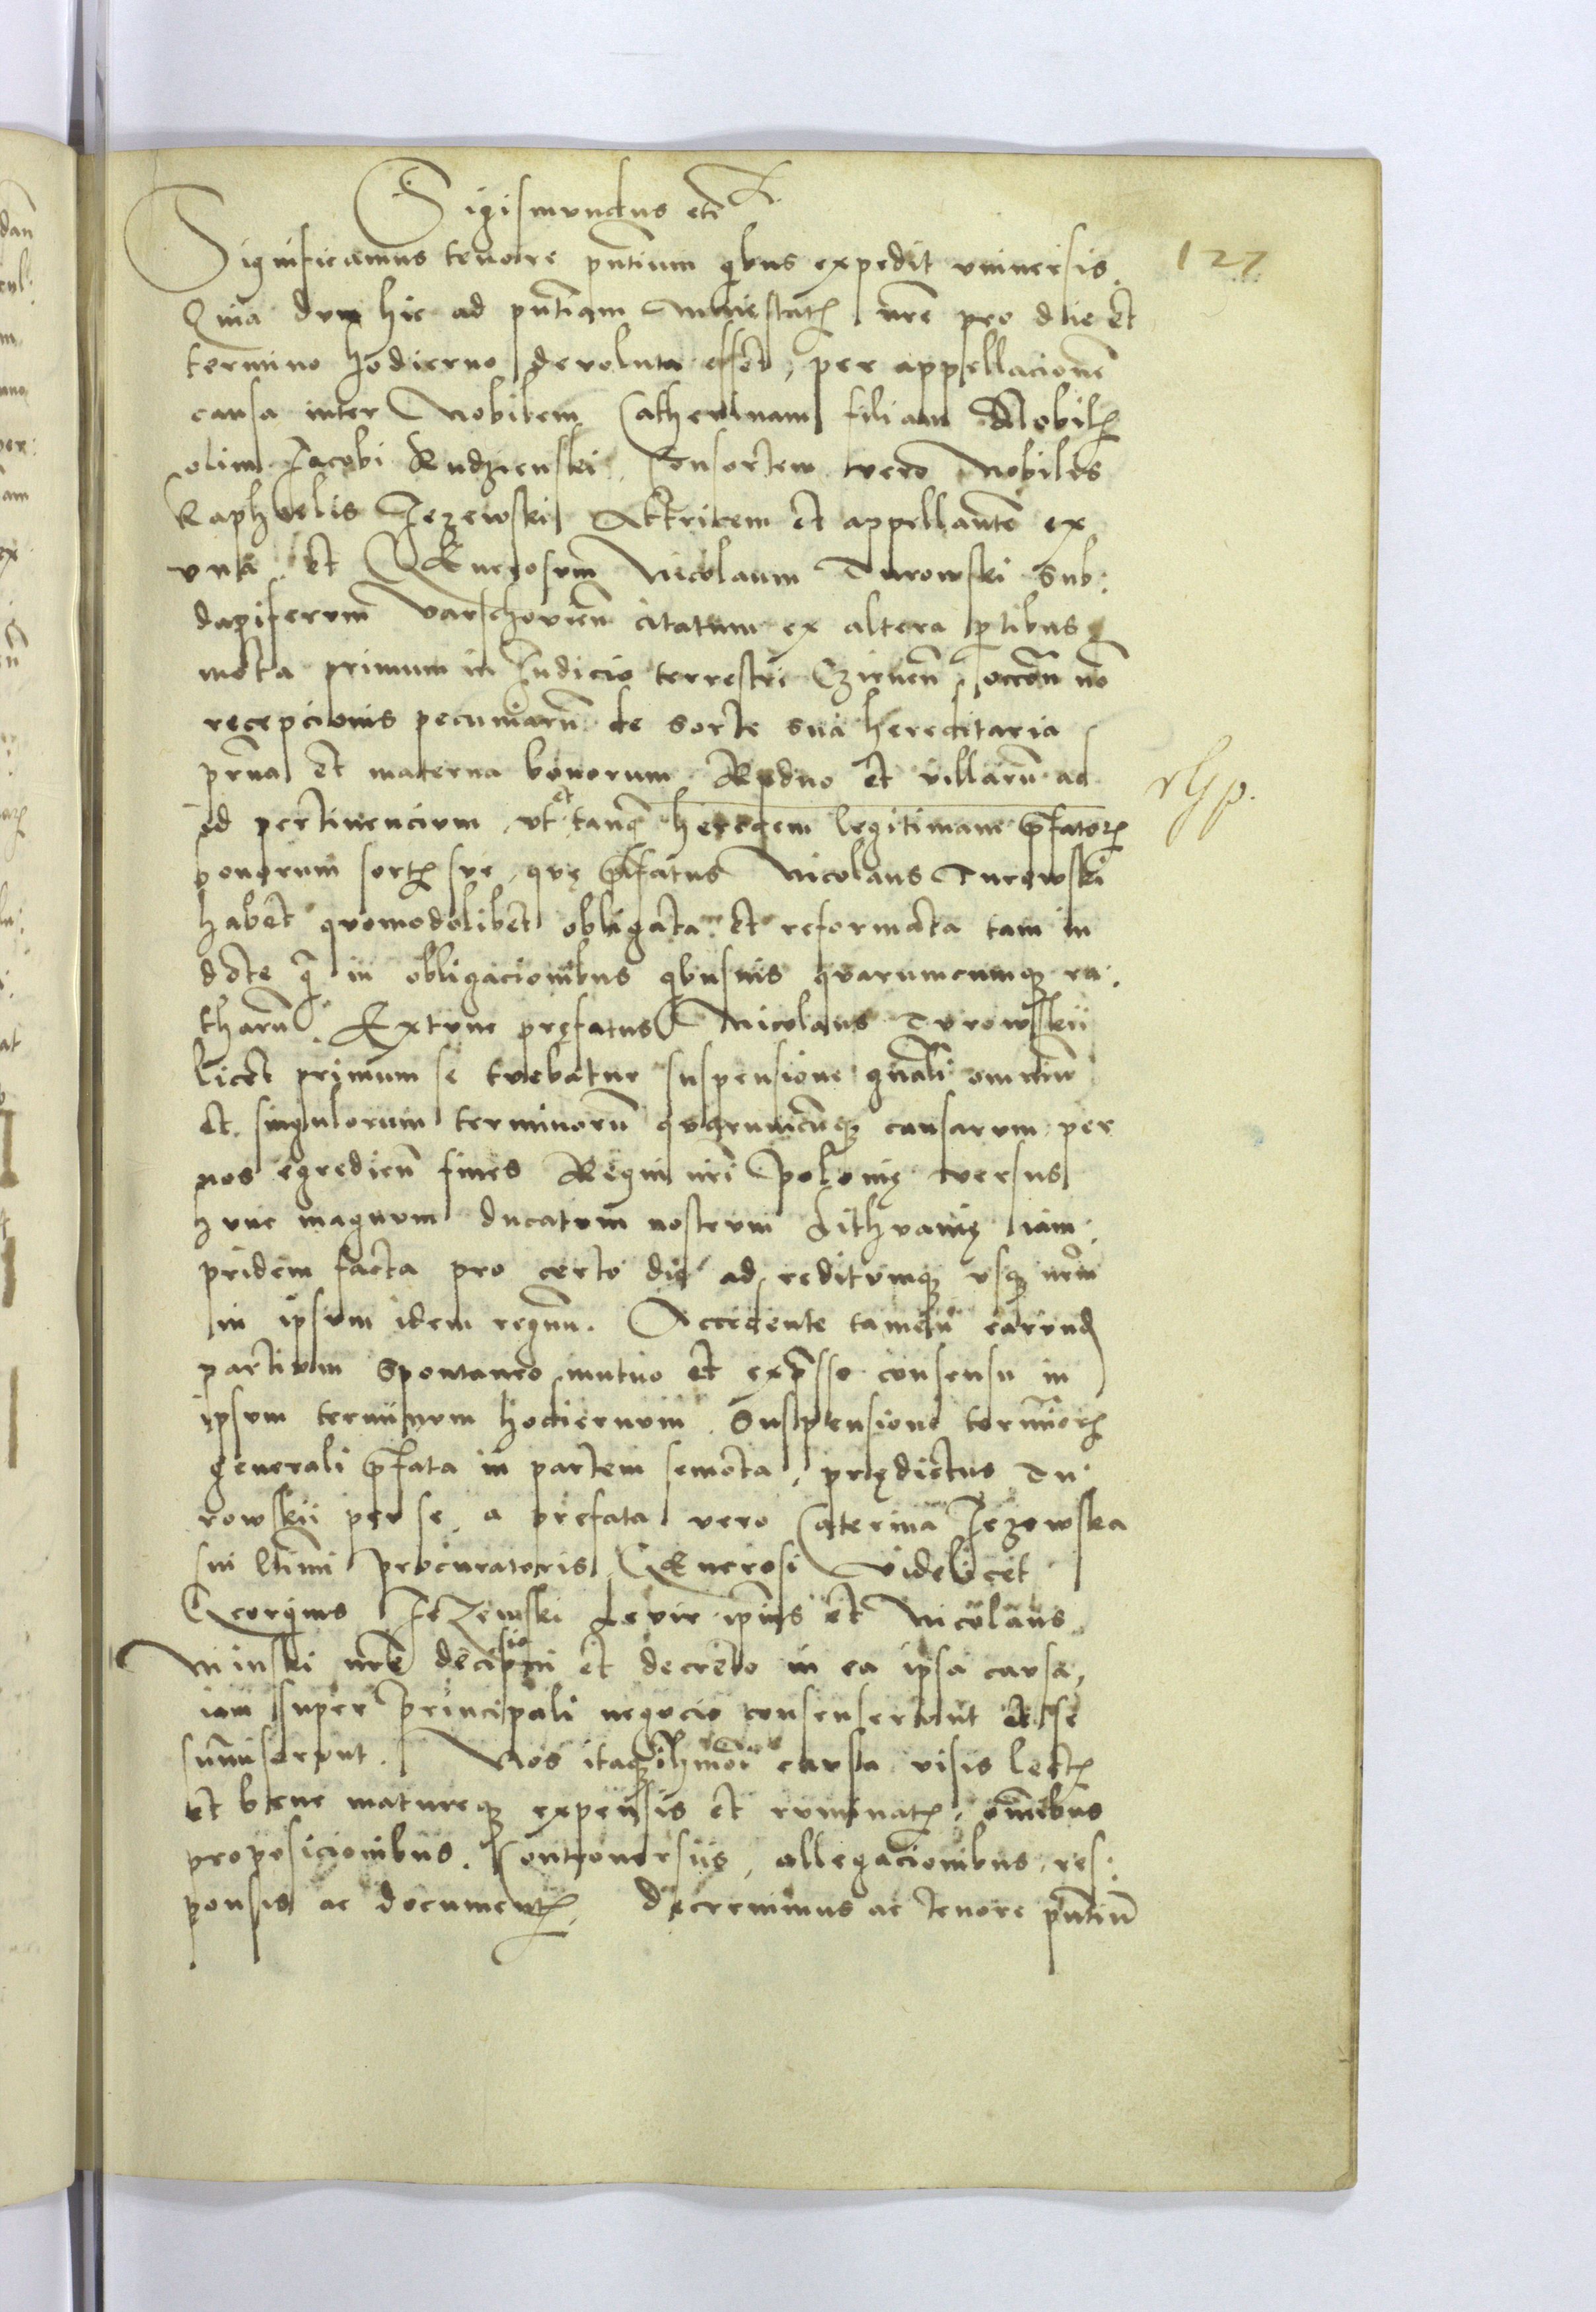 Sigismundus etc
Significamus tenore pñtium qbus expedit vniuersis. 127
Quia dum hic ad pñtiam Maiestatis nrẽ pro die et
termino hodierno devoluta esset, per appellacionẽ
causa inter Nobilem Catherinam filiam Nobilis
olim Jacobi Rudzienski, Consortem vero Nobilis
Raphaelis Jezewski Actricem et appellantẽ ex
vna et Generosum Nicolaum Turowski Sub:
dapiferum Varschovieñ citatum ex altera ptibus
mota primum in Judicio terrestri Czirneñ, occoñe nõ
recepcionis pecuniarũ de sorte sua hereditaria
prña et materna bonorum Rudno et villarũ ad
id pertinencium, vt et tanq̃ heredem legitimam p̃fatorum
bonorum sortis sue, quę p̃fatus Nicolaus Turowski
habet quomodolibet obligata et reformata tam in
dote q̃ in obligacionibus qbusuis quarumcumq; ra:
tharũ. Extunc pręfatus Nicolaus Turowskii
licet primum se tuebatur suspensione gñali omniũ
et singulorum terminorũ quarumcũq; causarum per
nos egredieñ fines Regni nri Polonię versus
hunc magnum ducatum nostrum Lithuanię iam:
pridem facta pro certo die ad reditumq; vsq; nrm̃
in ipsum idem regnum. Accedente tamen earund
partium Spontaneo mutuo et exp̃sso consensu in
ipsum terminum hodiernum Suspensione terminorum
generali p̃fata in partem semota, prędictus Tu:
rowskii per se, a prefata vero Caterina Jezowska
sui ltimi procuratoris Generosi Videlicet
Georgius Jezewski Levir ipius et Nicolaus
Minski nrẽ decisioni et decreto in ea ipsa causa,
iam super principali negocio consenserunt et se
sum̃iserunt. Nos itaq; in hmõi causa visis lectis
et bene matureq; expensis et ruminatis, om̃ibus
proposicionibus, Controuersiis, allegacionibus, res:
ponsis ac documentis, Decreuimus ac tenore pñtiũ